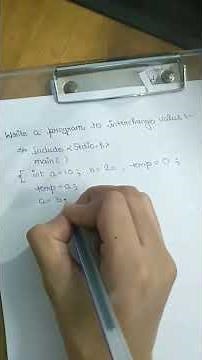 Write a program to interchange values :-
# include <Stdio.h>
main( )
{ int a=10 ; b=20 , temp=0 ;
temp=a;
a= b;